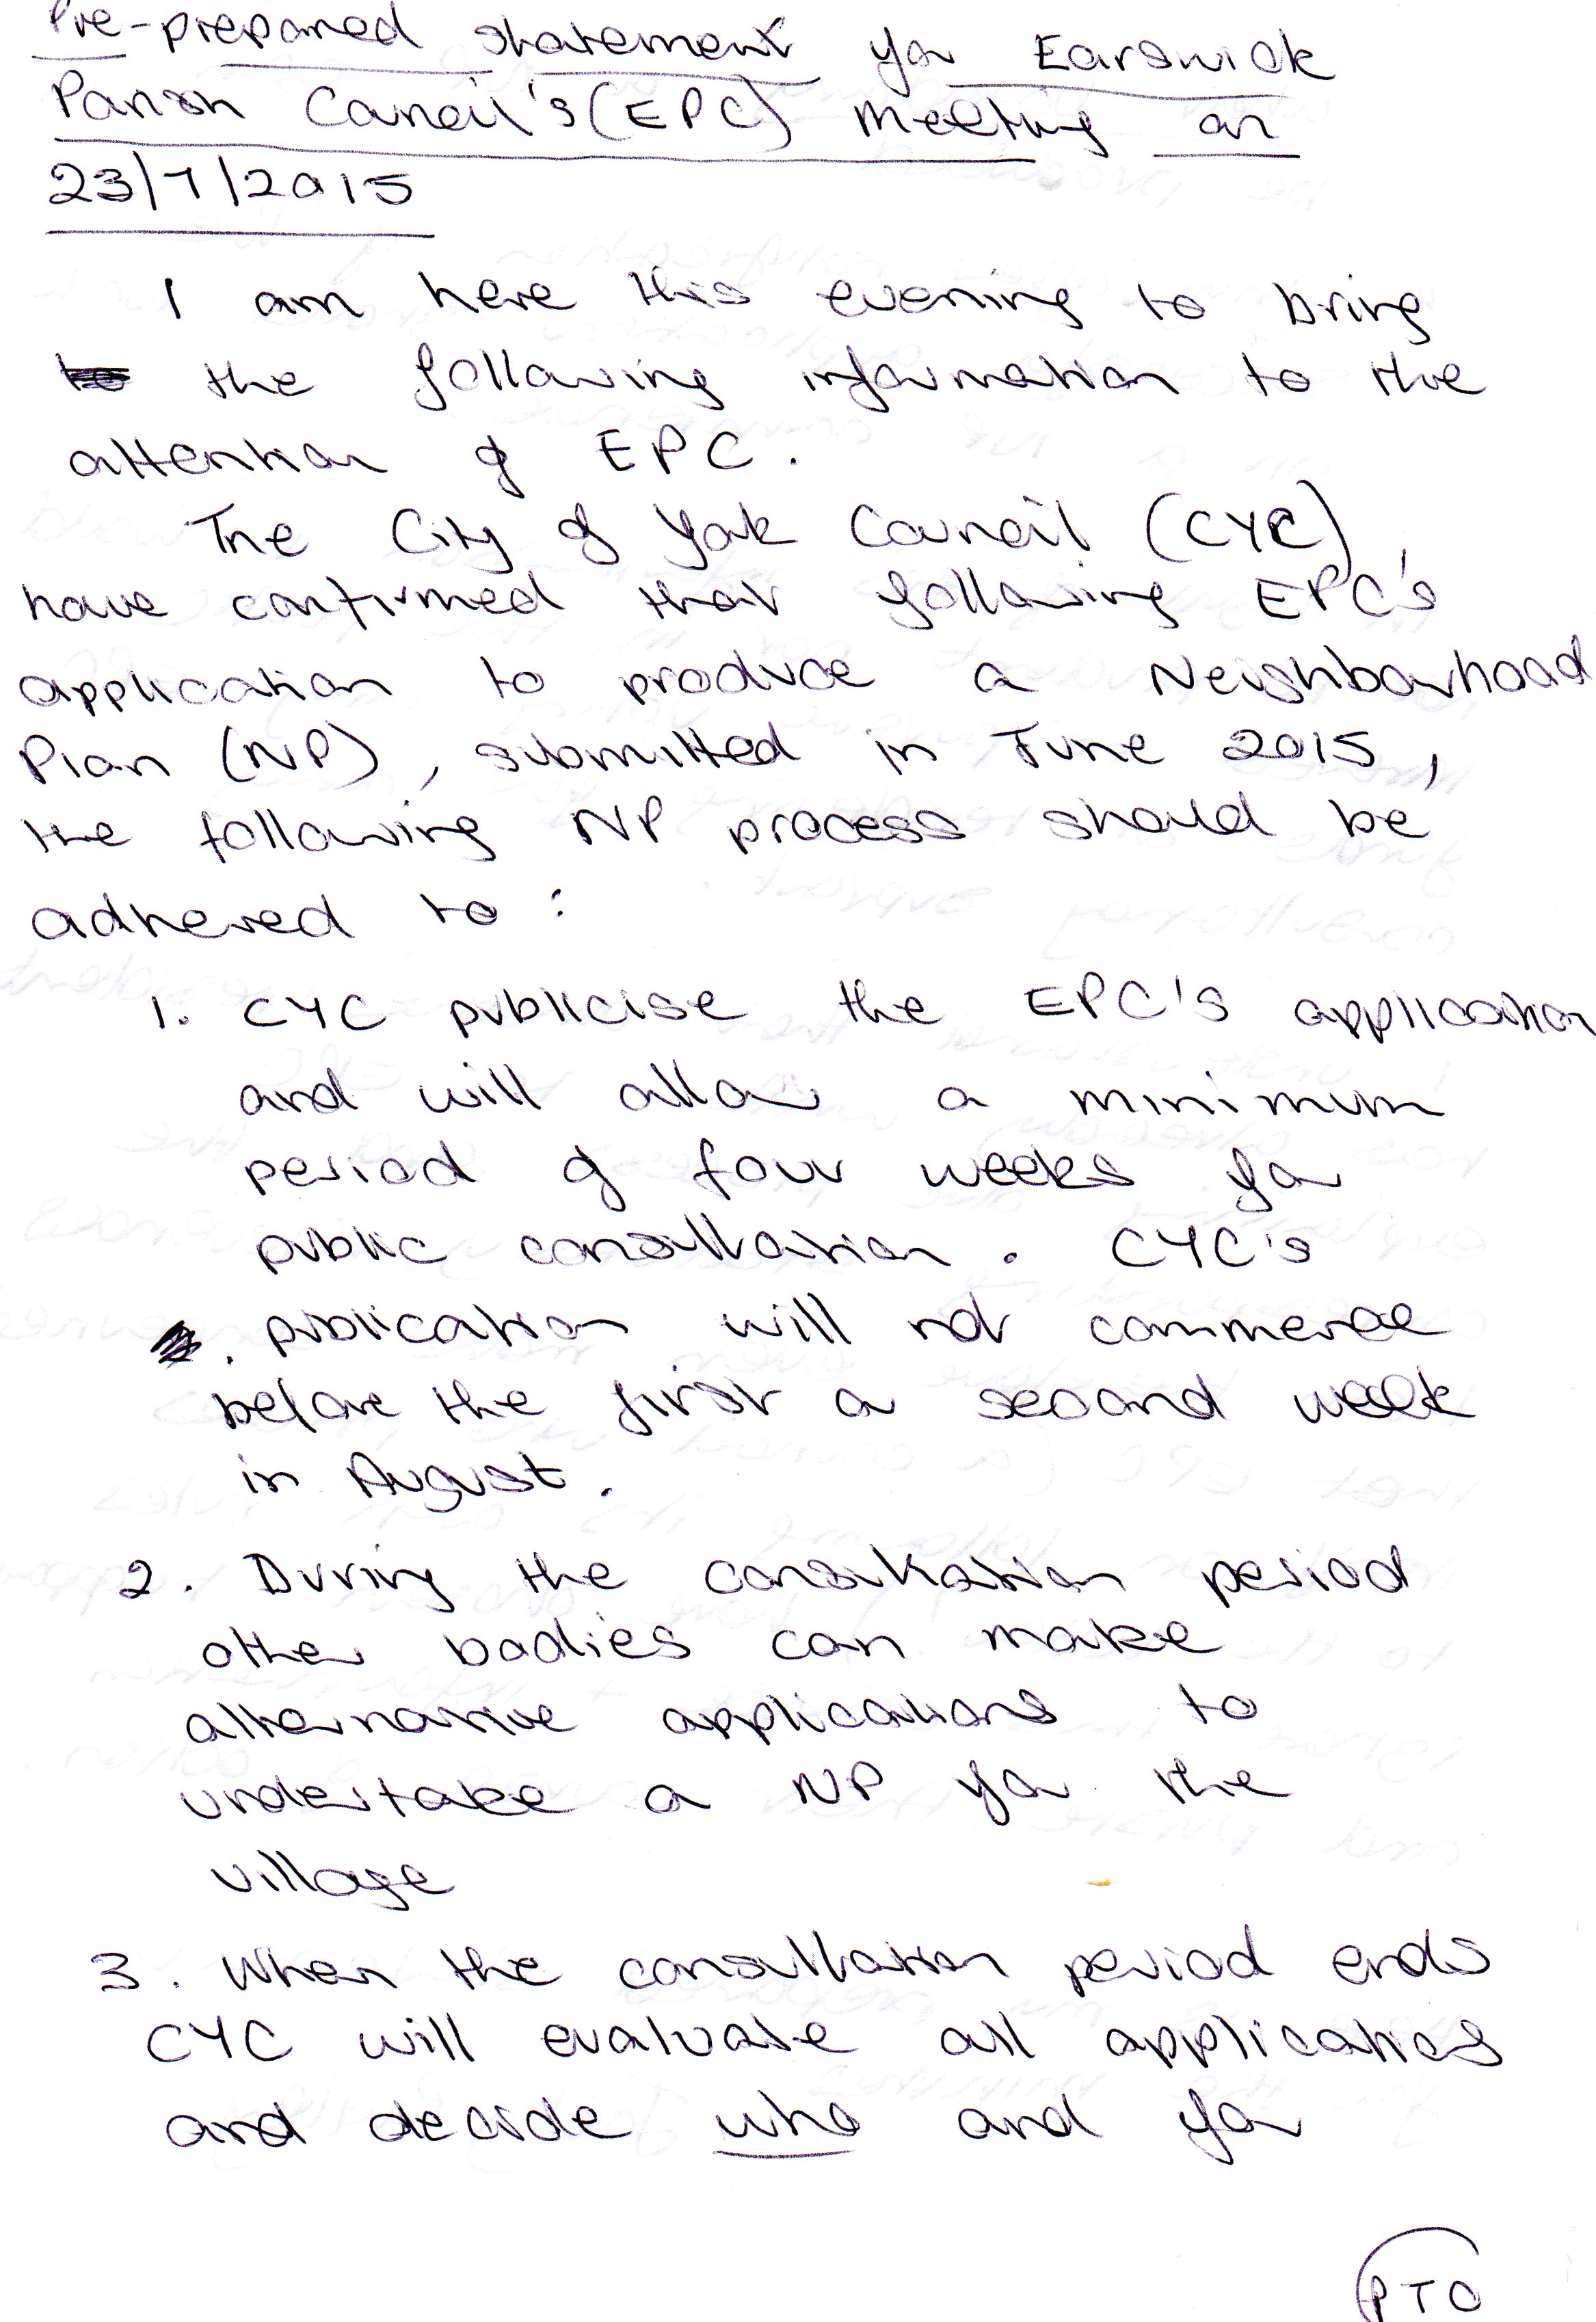 Pre-prepared statement for Earswick
Parish Council's (EPC) meeting on
23/7/2015
I am here this evening to bring
the following information to the
attention of EPC.
The City of York Council (CYC),
have confirmed that following EPC's
application to produce a Neighbourhood
Plan (NP), submitted in June 2015,
the following NP process should be
adhered to :
1. CYC publicise the EPC's application
and will allow a minimum
period of four weeks for
public consultation. CYC's
publication will not commence
before the first or second week
in August.
2. During the consultation period
other bodies can make
alternative applications to
undertake a NP for the
village
3. When the consultation period ends
CYC will evaluate all applications
and decide who and for
PTO